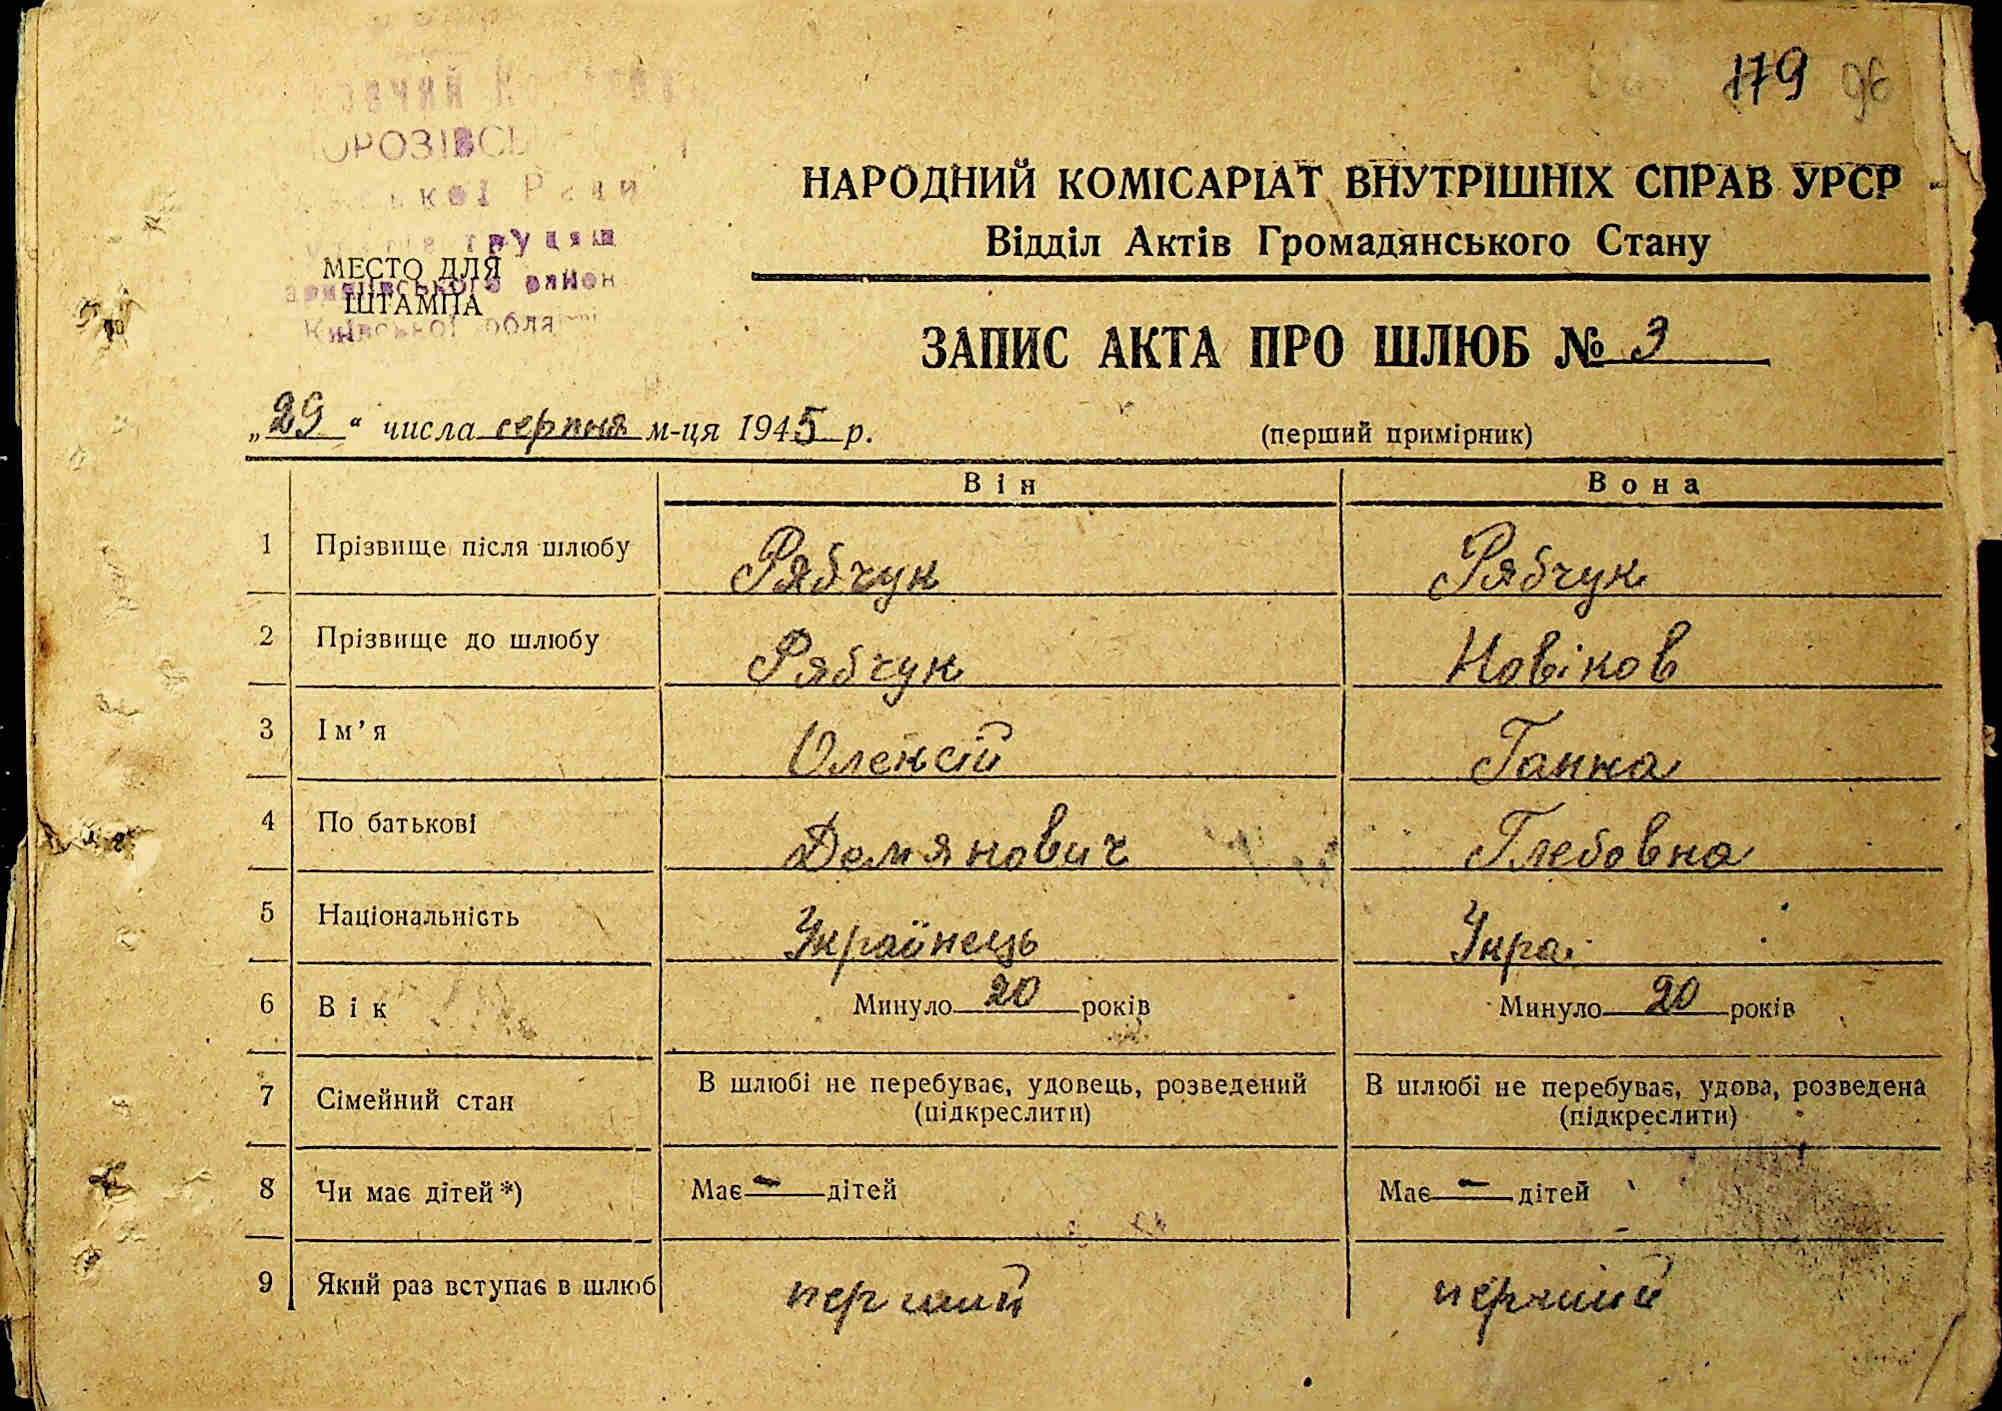 179 96
НАРОДНИЙ КОМІСАРІАТ ВНУТРІШНІХ СПРАВ УРСР
Відділ Актів Громадянського Стану
МЕСТО ДЛЯ
ШТАМПА
район
Київської
ЗАПИС АКТА ПРО ШЛЮБ № 3
„29“ числа серпня м-ця 1945 р.
(перший примірник)
Він Вона
1 Прізвище після шлюбу Рябчук Рябчук
2 Прізвище до шлюбу Рябчук Новіков
3 Ім’я Олексій Ганна
4 По батькові Демянович Глебовна
5 Національність Українець Укра.
6 Вік Минуло 20 років Минуло 20 років
7 Сімейний стан В шлюбі не перебуває, удовець, розведений В шлюбі не перебуває, удова, розведена
(підкреслити) (підкреслити)
8 Чи має дітей*) Має — дітей Має — дітей
9 Який раз вступає в шлюб перший перший